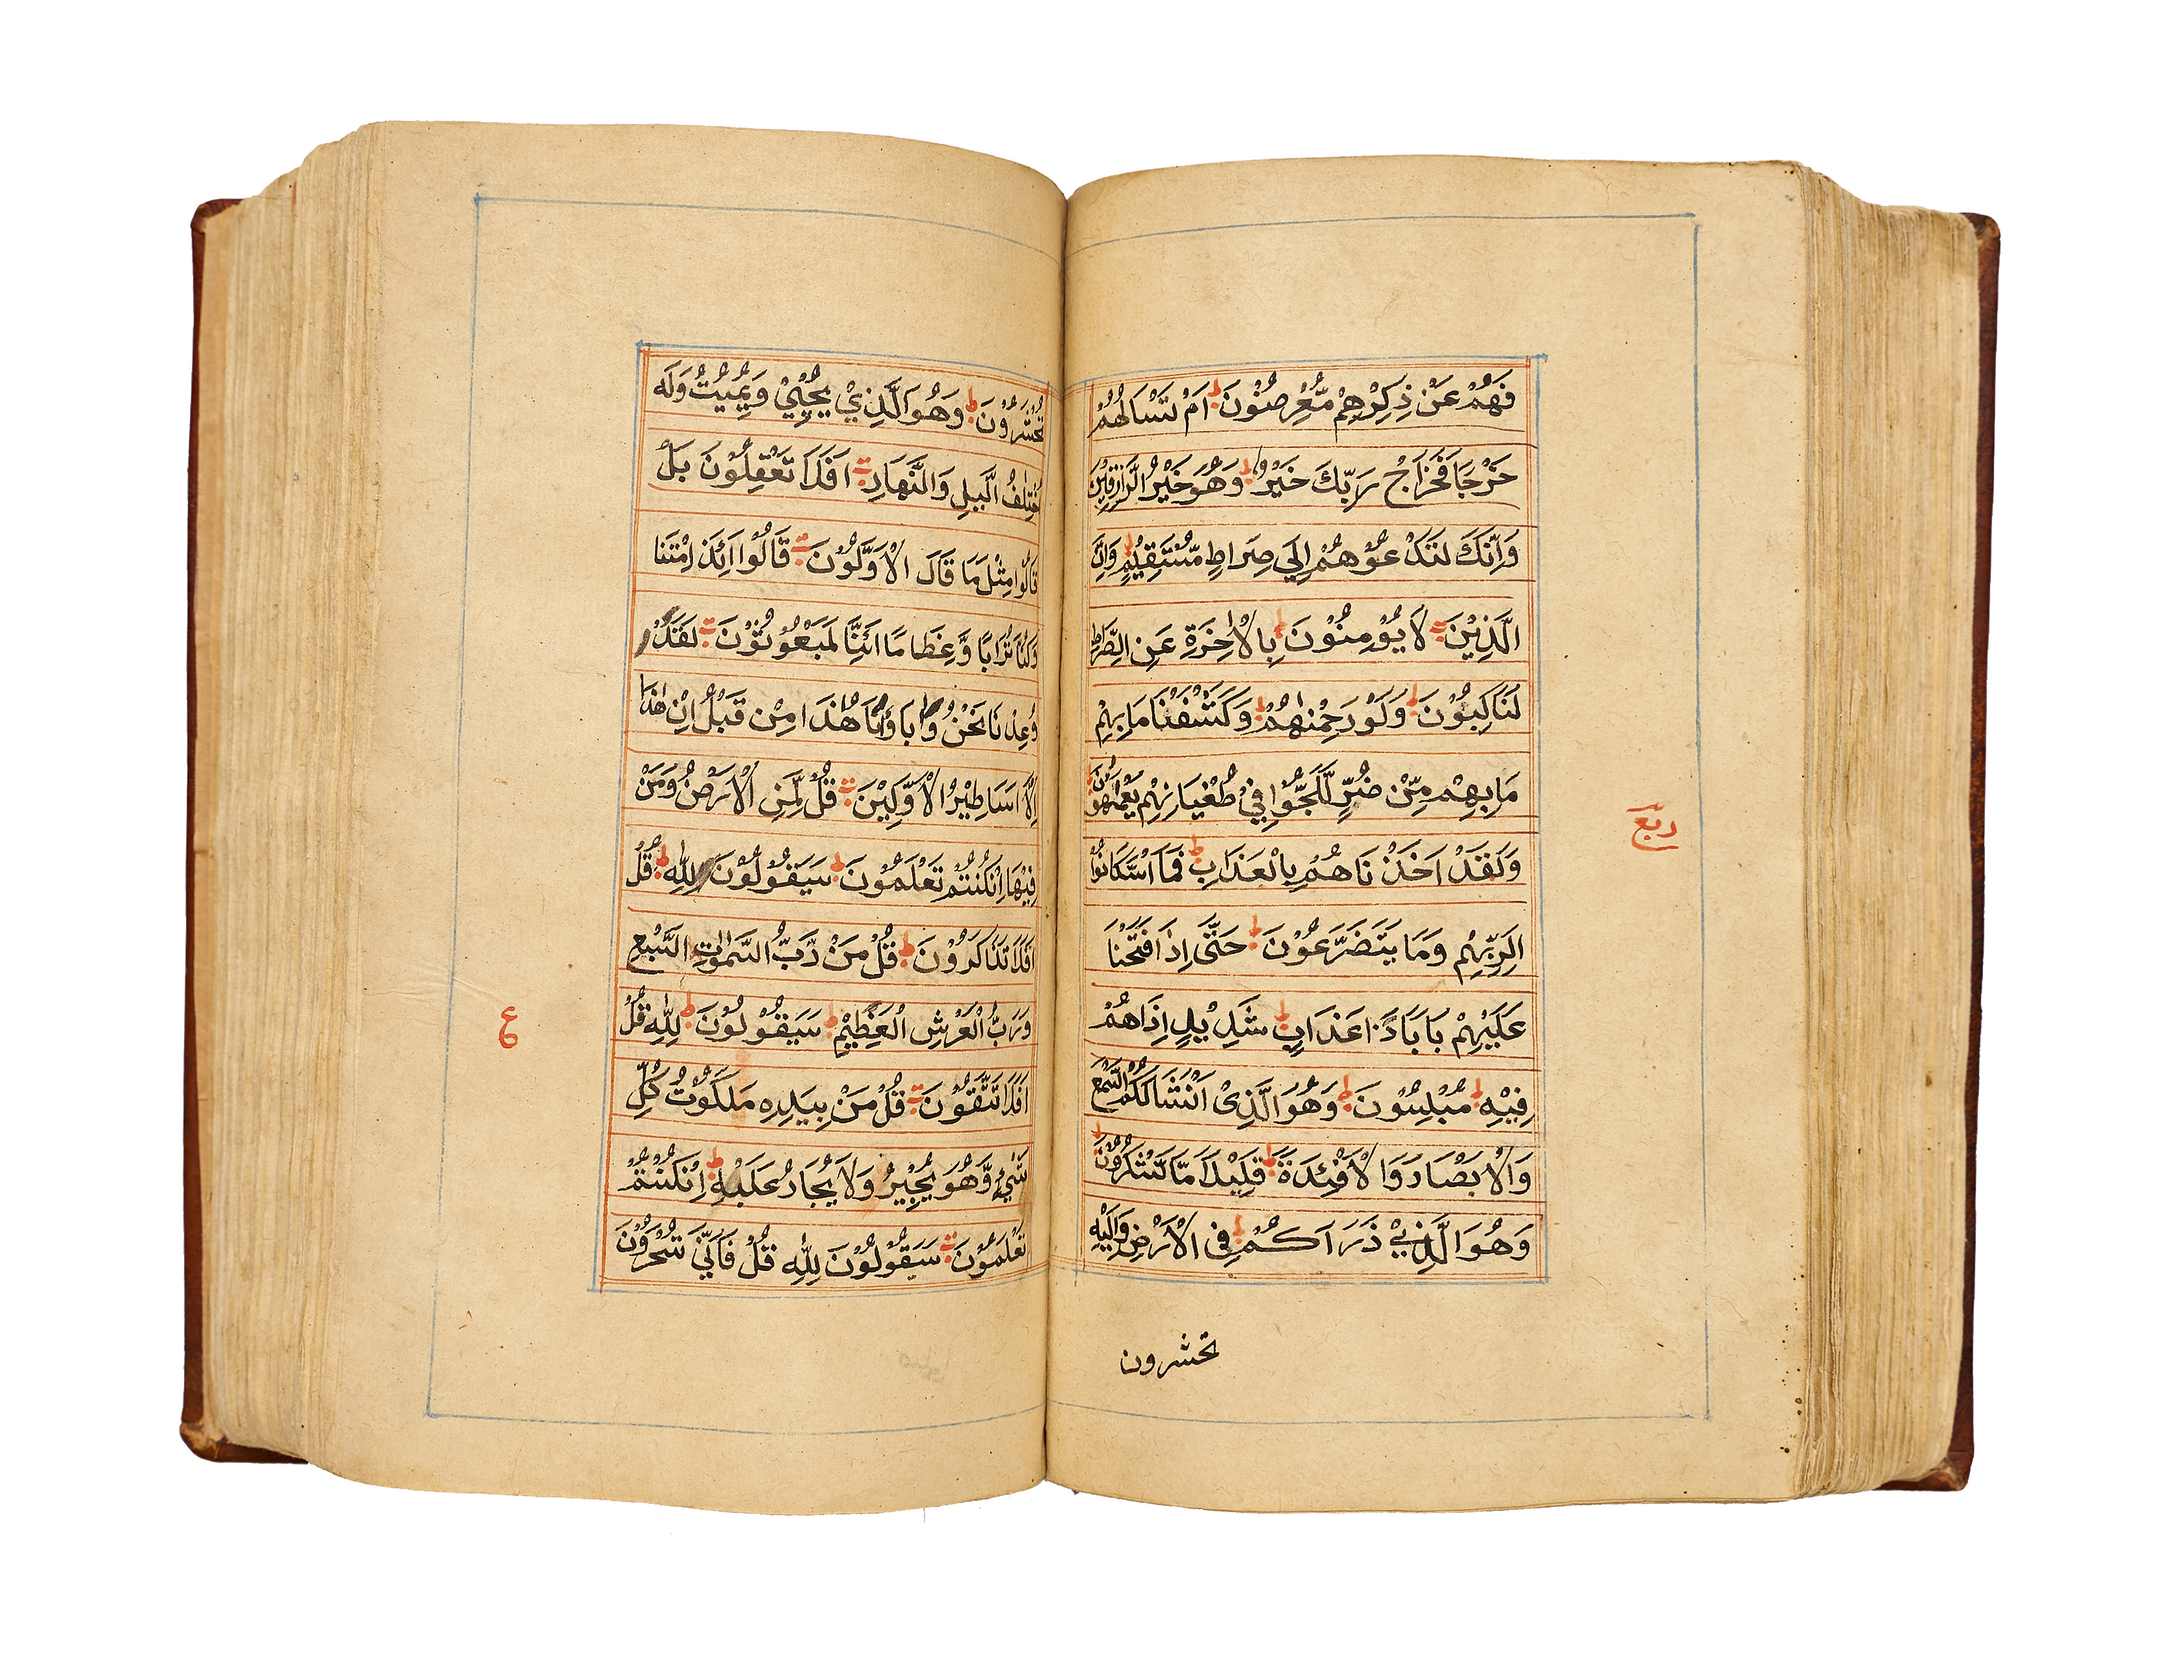 فَهُمْ عَنْ ذِكْرِهِمْ مُّعْرِضُوْنَ ط اَمْ تَسْاَلُهُمْ
خَرْجًا فَخَرَاجُ رَبِّكَ خَيْرٌ ط وَهُوَ خَيْرُ الرَّازِقِيْنَ
وَاِنَّكَ لَتَدْعُوْهُمْ اِلَى صِرَاطٍ مُّسْتَقِيْمٍ ط وَاِنَّ
الَّذِيْنَ لَا يُؤْمِنُوْنَ بِالْاٰخِرَةِ عَنِ الصِّرَاطِ
لَنَاكِبُوْنَ ط وَلَوْ رَحِمْنٰهُمْ ط وَكَشَفْنَا مَا بِهِمْ
مَا بِهِمْ مِّنْ ضُرٍّ لَّلَجُّوْا فِيْ طُغْيَانِهِمْ يَعْمَهُوْنَ
وَلَقَدْ اَخَذْنَاهُمْ بِالْعَذَابِ ط فَمَا اسْتَكَانُوْا
لِرَبِّهِمْ وَمَا يَتَضَرَّعُوْنَ ط حَتّٰى اِذَا فَتَحْنَا
عَلَيْهِمْ بَابًا ذَا عَذَابٍ ط شَدِيْدٍ اِذَا هُمْ
فِيْهِ ط مُبْلِسُوْنَ ط وَهُوَ الَّذِىْ اَنْشَاَ لَكُمُ السَّمْعَ
وَالْاَبْصَارَ وَالْاَفْئِدَةَ ط قَلِيْلًا مَّا تَشْكُرُوْنَ ط
وَهُوَ الَّذِيْ ذَرَاَكُمْ ط فِى الْاَرْضِ وَاِلَيْهِ
تحشرون
ربع
تُحْشَرُوْنَ ط وَهُوَ الَّذِيْ يُحْيِيْ وَيُمِيْتُ وَلَهُ
اخْتِلٰفُ الَّيْلِ وَالنَّهَارِ ت اَفَلَا تَعْقِلُوْنَ بَلْ
قَالُوْا مِثْلَ مَا قَالَ الْاَوَّلُوْنَ ت قَالُوْا اَئِذَا مِتْنَا
وَكُنَّا تُرَابًا وَّعِظَامًا اَئِنَّا لَمَبْعُوْثُوْنَ ت لَقَدْ
وُعِدْنَا نَحْنُ وَاٰبَاؤُنَا هٰذَا مِنْ قَبْلُ اِنْ هٰذَا
اِلَّا اَسَاطِيْرُ الْاَوَّلِيْنَ ت قُلْ لِّمَنِ الْاَرْضُ وَمَنْ
فِيْهَا اِنْ كُنْتُمْ تَعْلَمُوْنَ ط سَيَقُوْلُوْنَ لِلّٰهِ ط قُلْ
اَفَلَا تَذَكَّرُوْنَ ط قُلْ مَنْ رَّبُّ السَّمٰوٰتِ السَّبْعِ
وَرَبُّ الْعَرْشِ الْعَظِيْمِ ط سَيَقُوْلُوْنَ ط لِلّٰهِ قُلْ
اَفَلَا تَتَّقُوْنَ ت قُلْ مَنْ بِيَدِهٖ مَلَكُوْتُ كُلِّ
شَيْءٍ وَّهُوَ يُجِيْرُ وَلَا يُجَارُ عَلَيْهِ ط اِنْ كُنْتُمْ
تَعْلَمُوْنَ ت سَيَقُوْلُوْنَ لِلّٰهِ قُلْ فَاَنّٰى تُسْحَرُوْنَ
ع